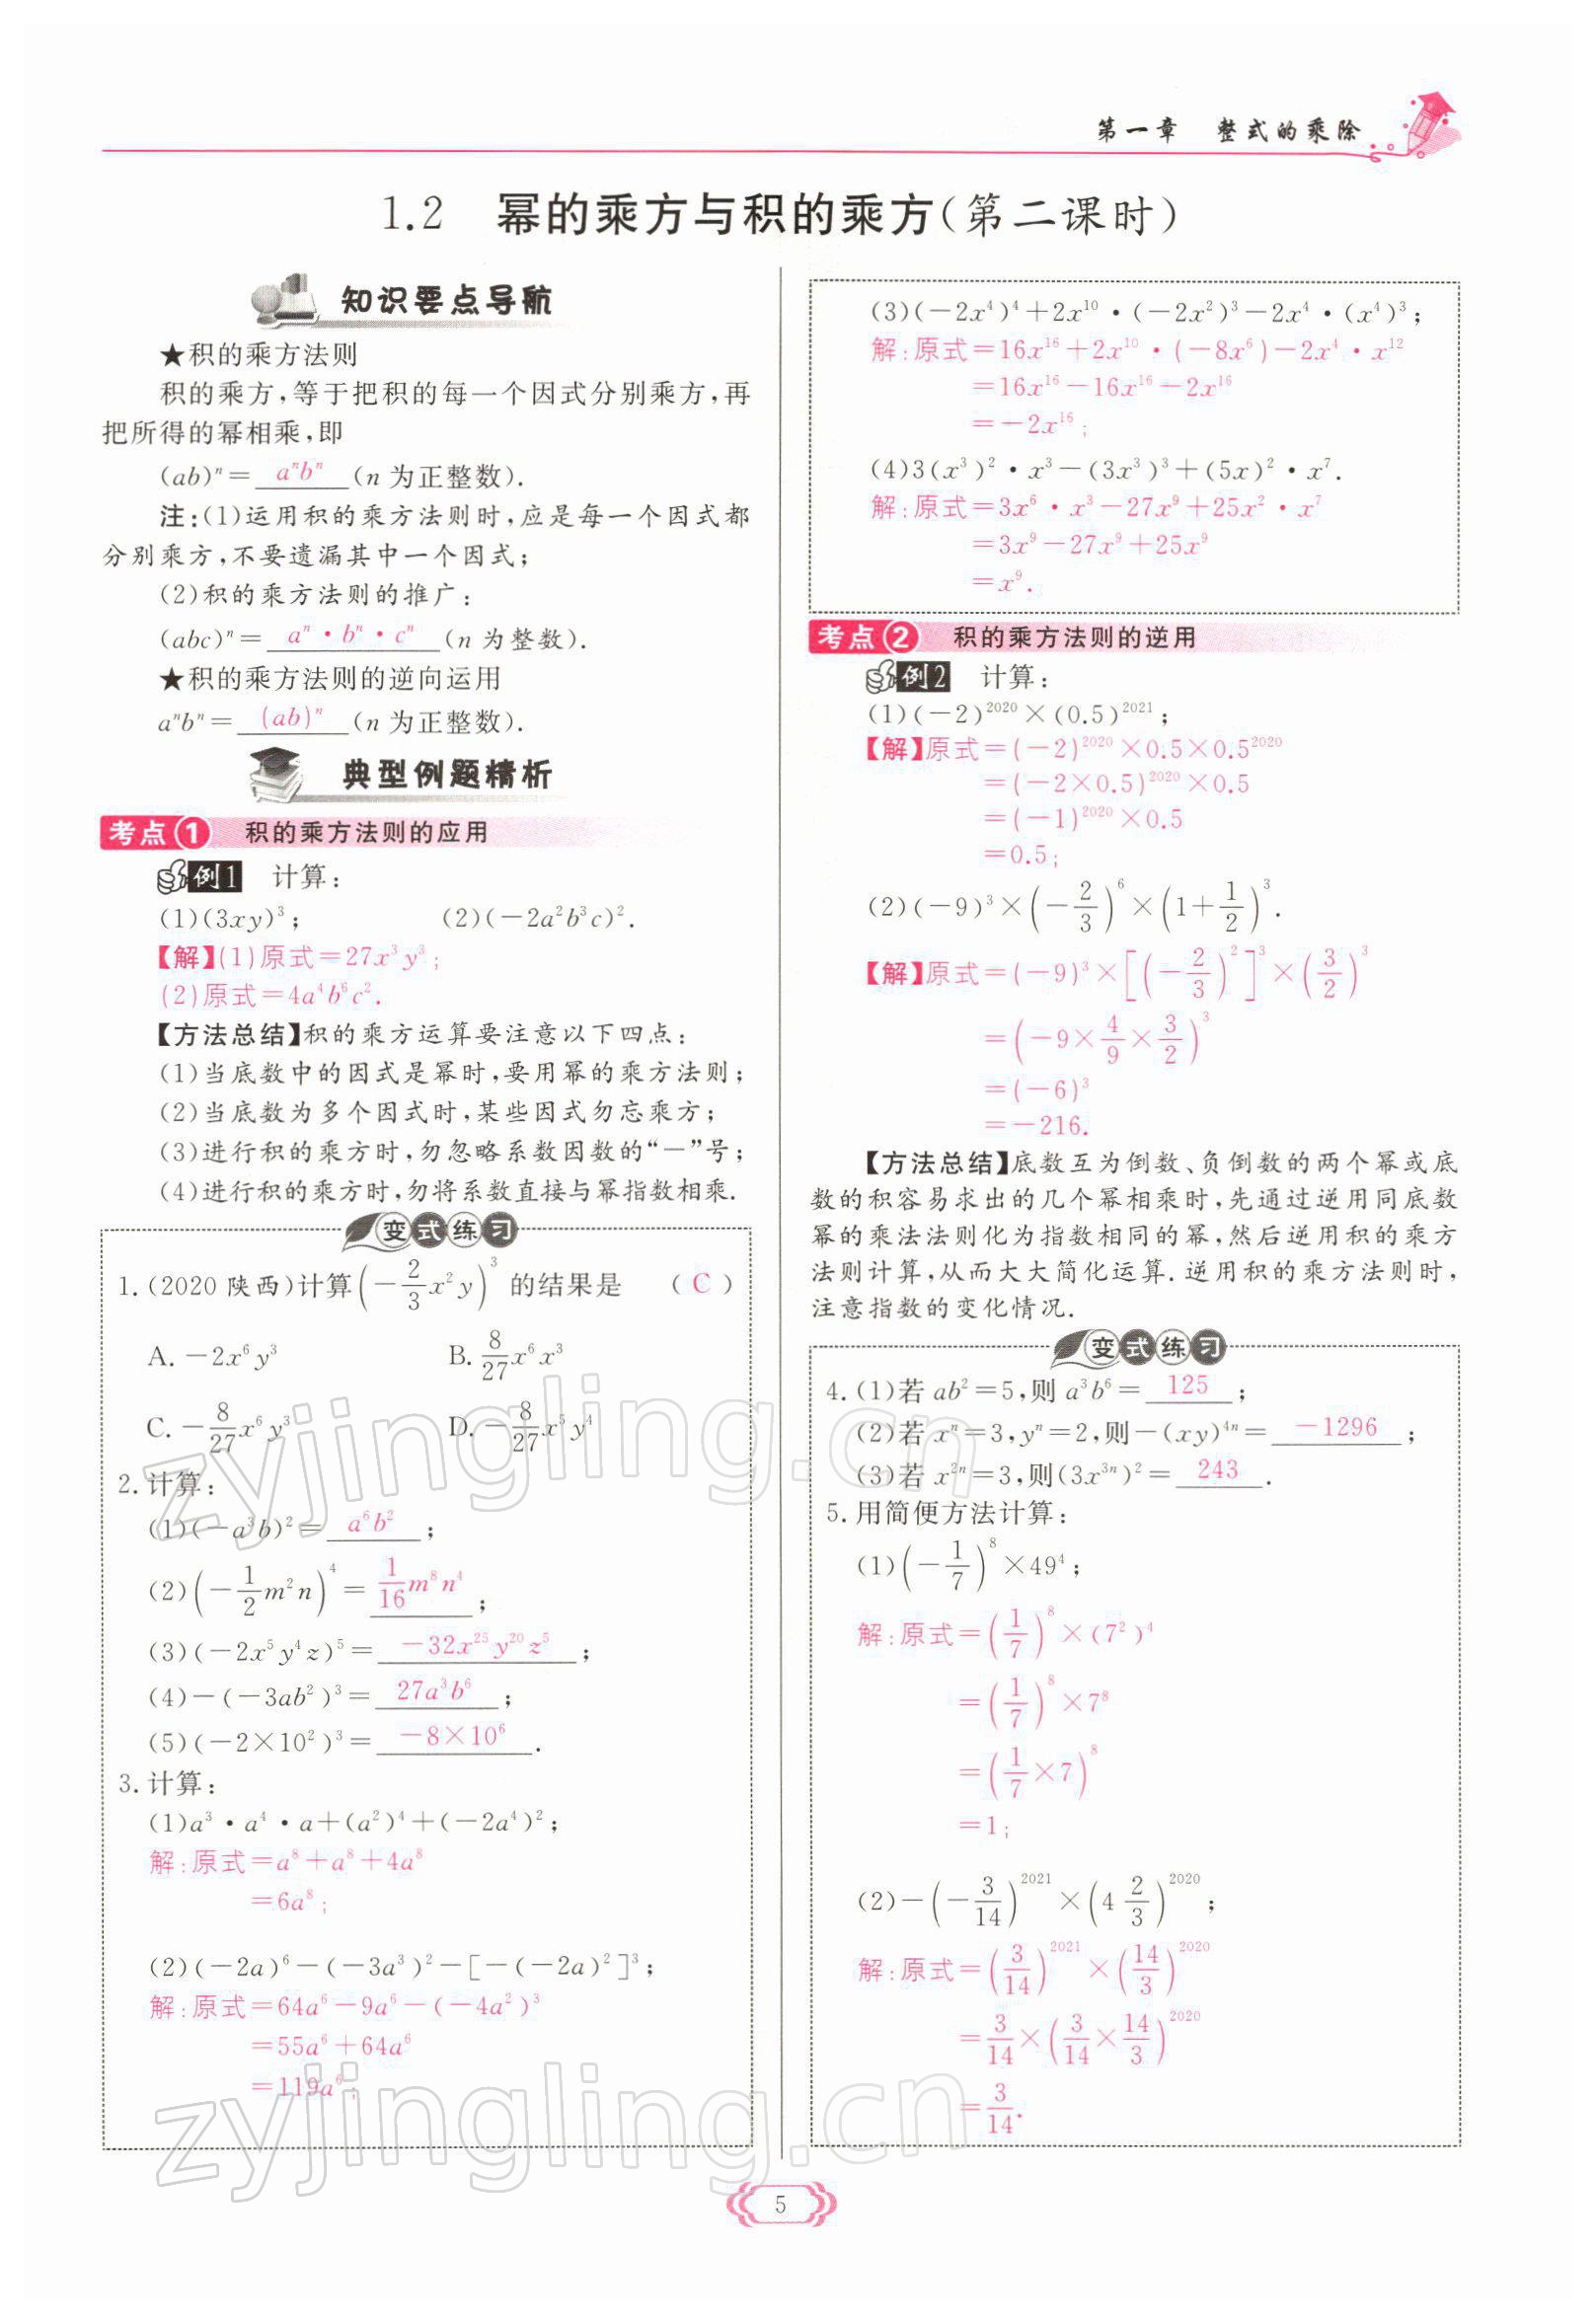 第一章 整式的乘除
1.2 幂的乘方与积的乘方(第二课时)
知识要点导航
★积的乘方法则
积的乘方,等于把积的每一个因式分别乘方,再
把所得的幂相乘,即
(ab)ⁿ= aⁿbⁿ (n 为正整数).
注:(1)运用积的乘方法则时,应是每一个因式都
分别乘方,不要遗漏其中一个因式;
(2)积的乘方法则的推广:
(abc)ⁿ= aⁿ·bⁿ·cⁿ (n 为整数).
★积的乘方法则的逆向运用
aⁿbⁿ= (ab)ⁿ (n 为正整数).
典型例题精析
考点1 积的乘方法则的应用
例1 计算:
(1)(3xy)³; (2)(-2a²b³c)².
【解】(1)原式=27x³y³;
(2)原式=4a⁴b⁶c².
【方法总结】积的乘方运算要注意以下四点:
(1)当底数中的因式是幂时,要用幂的乘方法则;
(2)当底数为多个因式时,某些因式勿忘乘方;
(3)进行积的乘方时,勿忽略系数因数的“-”号;
(4)进行积的乘方时,勿将系数直接与幂指数相乘.
变式练习
1.(2020 陕西)计算(-2/3x²y)³的结果是 (C)
A.-2x⁶y³ B.8/27x⁶x³
C.-8/27x⁶y³ D.-8/27x⁵y⁴
2.计算:
(1)(-a³b)²= a⁶b² ;
(2)(-1/2m²n)⁴= 1/16m⁸n⁴ ;
(3)(-2x⁵y⁴z)⁵= -32x²⁵y²⁰z⁵ ;
(4)-(-3ab²)³= 27a³b⁶ ;
(5)(-2×10²)³= -8×10⁶ .
3.计算:
(1)a³·a⁴·a+(a²)⁴+(-2a⁴)²;
解:原式=a⁸+a⁸+4a⁸
=6a⁸;
(2)(-2a)⁶-(-3a³)²-[-(-2a)²]³;
解:原式=64a⁶-9a⁶-(-4a²)³
=55a⁶+64a⁶
=119a⁶;
(3)(-2x⁴)⁴+2x¹⁰·(-2x²)³-2x⁴·(x⁴)³;
解:原式=16x¹⁶+2x¹⁰·(-8x⁶)-2x⁴·x¹²
=16x¹⁶-16x¹⁶-2x¹⁶
=-2x¹⁶;
(4)3(x³)²·x³-(3x³)³+(5x)²·x⁷.
解:原式=3x⁶·x³-27x⁹+25x²·x⁷
=3x⁹-27x⁹+25x⁹
=x⁹.
考点2 积的乘方法则的逆用
例2 计算:
(1)(-2)²⁰²⁰×(0.5)²⁰²¹;
【解】原式=(-2)²⁰²⁰×0.5×0.5²⁰²⁰
=(-2×0.5)²⁰²⁰×0.5
=(-1)²⁰²⁰×0.5
=0.5;
(2)(-9)³×(-2/3)⁶×(1+1/2)³.
【解】原式=(-9)³×[(-2/3)²]³×(3/2)³
=(-9×4/9×3/2)³
=(-6)³
=-216.
【方法总结】底数互为倒数、负倒数的两个幂或底
数的积容易求出的几个幂相乘时,先通过逆用同底数
幂的乘法法则化为指数相同的幂,然后逆用积的乘方
法则计算,从而大大简化运算.逆用积的乘方法则时,
注意指数的变化情况.
变式练习
4.(1)若 ab²=5,则 a³b⁶= 125 ;
(2)若 xⁿ=3,yⁿ=2,则-(xy)⁴ⁿ= -1296 ;
(3)若 x²ⁿ=3,则(3x³ⁿ)²= 243 .
5.用简便方法计算:
(1)(-1/7)⁸×49⁴;
解:原式=(1/7)⁸×(7²)⁴
=(1/7)⁸×7⁸
=(1/7×7)⁸
=1;
(2)-(-3/14)²⁰²¹×(4 2/3)²⁰²⁰;
解:原式=(3/14)²⁰²¹×(14/3)²⁰²⁰
=3/14×(3/14×14/3)²⁰²⁰
=3/14.
5
zyjingling.cn
zyjingling.cn